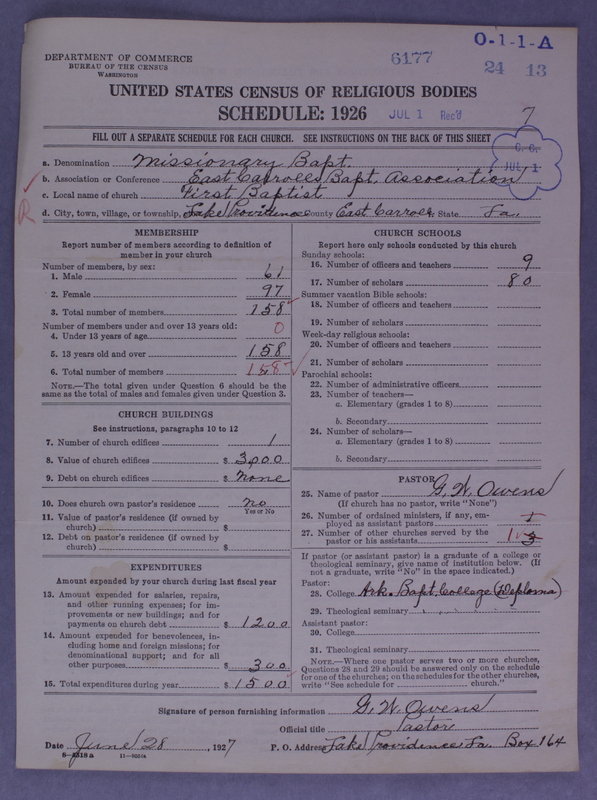 O-1-1-A
DEPARTMENT OF COMMERCE
BUREAU OF THE CENSUS
WASHINGTON
6177
24 13
UNITED STATES CENSUS OF RELIGIOUS BODIES
SCHEDULE: 1926 JUL 1 Rec'd
7
FILL OUT A SEPARATE SCHEDULE FOR EACH CHURCH. SEE INSTRUCTIONS ON THE BACK OF THIS SHEET
JUL 1
a. Denomination Missionary Bapt.
b. Association or Conference East Carrolls Bapt. Association
c. Local name of church First Baptist
R
d. City, town, village, or township, Lake Providence County East Carroll State La.
MEMBERSHIP
Report number of members according to definition of
member in your church
Number of members, by sex:
1. Male 61
2. Female 97
3. Total number of members 158
Number of members under and over 13 years old:
4. Under 13 years of age 0
5. 13 years old and over 158
6. Total number of members 158
NOTE.—The total given under Question 6 should be the
same as the total of males and females given under Question 3.
CHURCH BUILDINGS
See instructions, paragraphs 10 to 12
7. Number of church edifices 1
8. Value of church edifices $ 3000
9. Debt on church edifices $ none
10. Does church own pastor's residence no
Yes or No
11. Value of pastor's residence (if owned by
church) $
12. Debt on pastor's residence (if owned by
church) $
EXPENDITURES
Amount expended by your church during last fiscal year
13. Amount expended for salaries, repairs,
and other running expenses; for im-
provements or new buildings; and for
payments on church debt $ 1200
14. Amount expended for benevolences, in-
cluding home and foreign missions; for
denominational support; and for all
other purposes $ 300
15. Total expenditures during year $ 1500
CHURCH SCHOOLS
Report here only schools conducted by this church
Sunday schools:
16. Number of officers and teachers 9
17. Number of scholars 80
Summer vacation Bible schools:
18. Number of officers and teachers
19. Number of scholars
Week-day religious schools:
20. Number of officers and teachers
21. Number of scholars
Parochial schools:
22. Number of administrative officers
23. Number of teachers—
a. Elementary (grades 1 to 8)
b. Secondary
24. Number of scholars—
a. Elementary (grades 1 to 8)
b. Secondary
PASTOR
25. Name of pastor G. W. Owens
(If church has no pastor, write "None")
26. Number of ordained ministers, if any, em-
ployed as assistant pastors
27. Number of other churches served by the
pastor or his assistants 3
If pastor (or assistant pastor) is a graduate of a college or
theological seminary, give name of institution below. (If
not a graduate, write "No" in the space indicated.)
Pastor:
28. College Ark. Bapt. College (Deploma)
29. Theological seminary
Assistant pastor:
30. College
31. Theological seminary
NOTE.—Where one pastor serves two or more churches,
Questions 28 and 29 should be answered only on the schedule
for one of the churches; on the schedules for the other churches,
write "See schedule for church."
Signature of person furnishing information G. W. Owens
Official title Pastor
Date June 28, 1927 P. O. Address Lake Providence La. Box 164